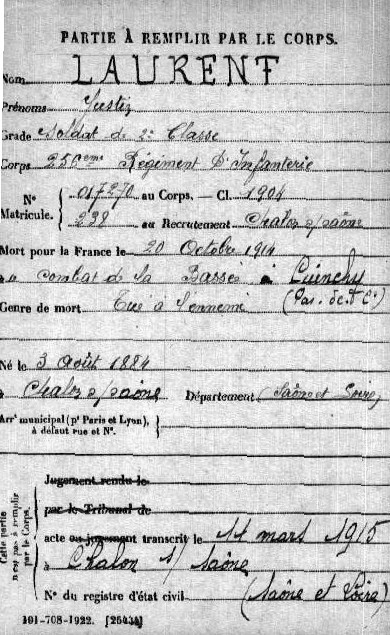 PARTIE À REMPLIR PAR LE CORPS.
Nom LAURENT
Prénoms Justin
Grade Soldat de 2e Classe
Corps 256eme Régiment D'Infanterie
N° Matricule. { 017270 au Corps. — Cl. 1904
238 au Recrutement Chalon s/saône
Mort pour la France le 20 Octobre 1914
à combat de La Bassée à Cuinchy
(Pas. de. C.)
Genre de mort Tué à l'ennemi
Né le 3 août 1884
à Chalon s/saône Département (Saône et Loire)
Arrt municipal (pr Paris et Lyon),
à défaut rue et N°.
Cette partie n'est pas à remplir par le Corps.
Jugement rendu le
par le Tribunal de
acte ou jugement transcrit le 11 mars 1915
à Chalon s/ Saône
N° du registre d'état civil (Saône et Loire)
101-708-1922. [26434]